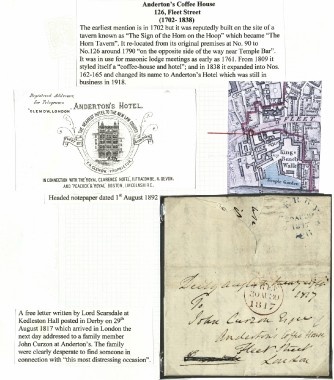 Anderton's Coffee House
126, Fleet Street
(1702- 1838)
The earliest mention is in 1702 but it was reputedly built on the site of a
tavern known as "The Sign of the Horn on the Hoop" which became "The
Horn Tavern". It re-located from its original premises at No. 90 to
No.126 around 1790 "on the opposite side of the way near Temple Bar".
It was in use for masonic lodge meetings as early as 1761. From 1809 it
styled itself a "coffee-house and hotel"; and in 1838 it expanded into Nos.
162-165 and changed its name to Anderton's Hotel which was still in
business in 1918.
Registered Address
for Telegrams
"CLEMOW, LONDON"
ANDERTON'S HOTEL.
IN CONNECTION WITH THE ROYAL CLARENCE HOTEL, ILFRACOMBE, N. DEVON,
AND PEACOCK & ROYAL, BOSTON, LINCOLNSHIRE.
FLEET
King's
Bench
Walk
Temple Gardens
Headed notepaper dated 1st August 1892
A free letter written by Lord Scarsdale at
Kedleston Hall posted in Derby on 29th
August 1817 which arrived in London the
next day addressed to a family member
John Curzon at Anderton's. The family
were clearly desperate to find someone in
connection with "this most distressing occasion".
1817
To
1817
John Curzon Esqre
Anderton's Coffee House
Fleet Street
London